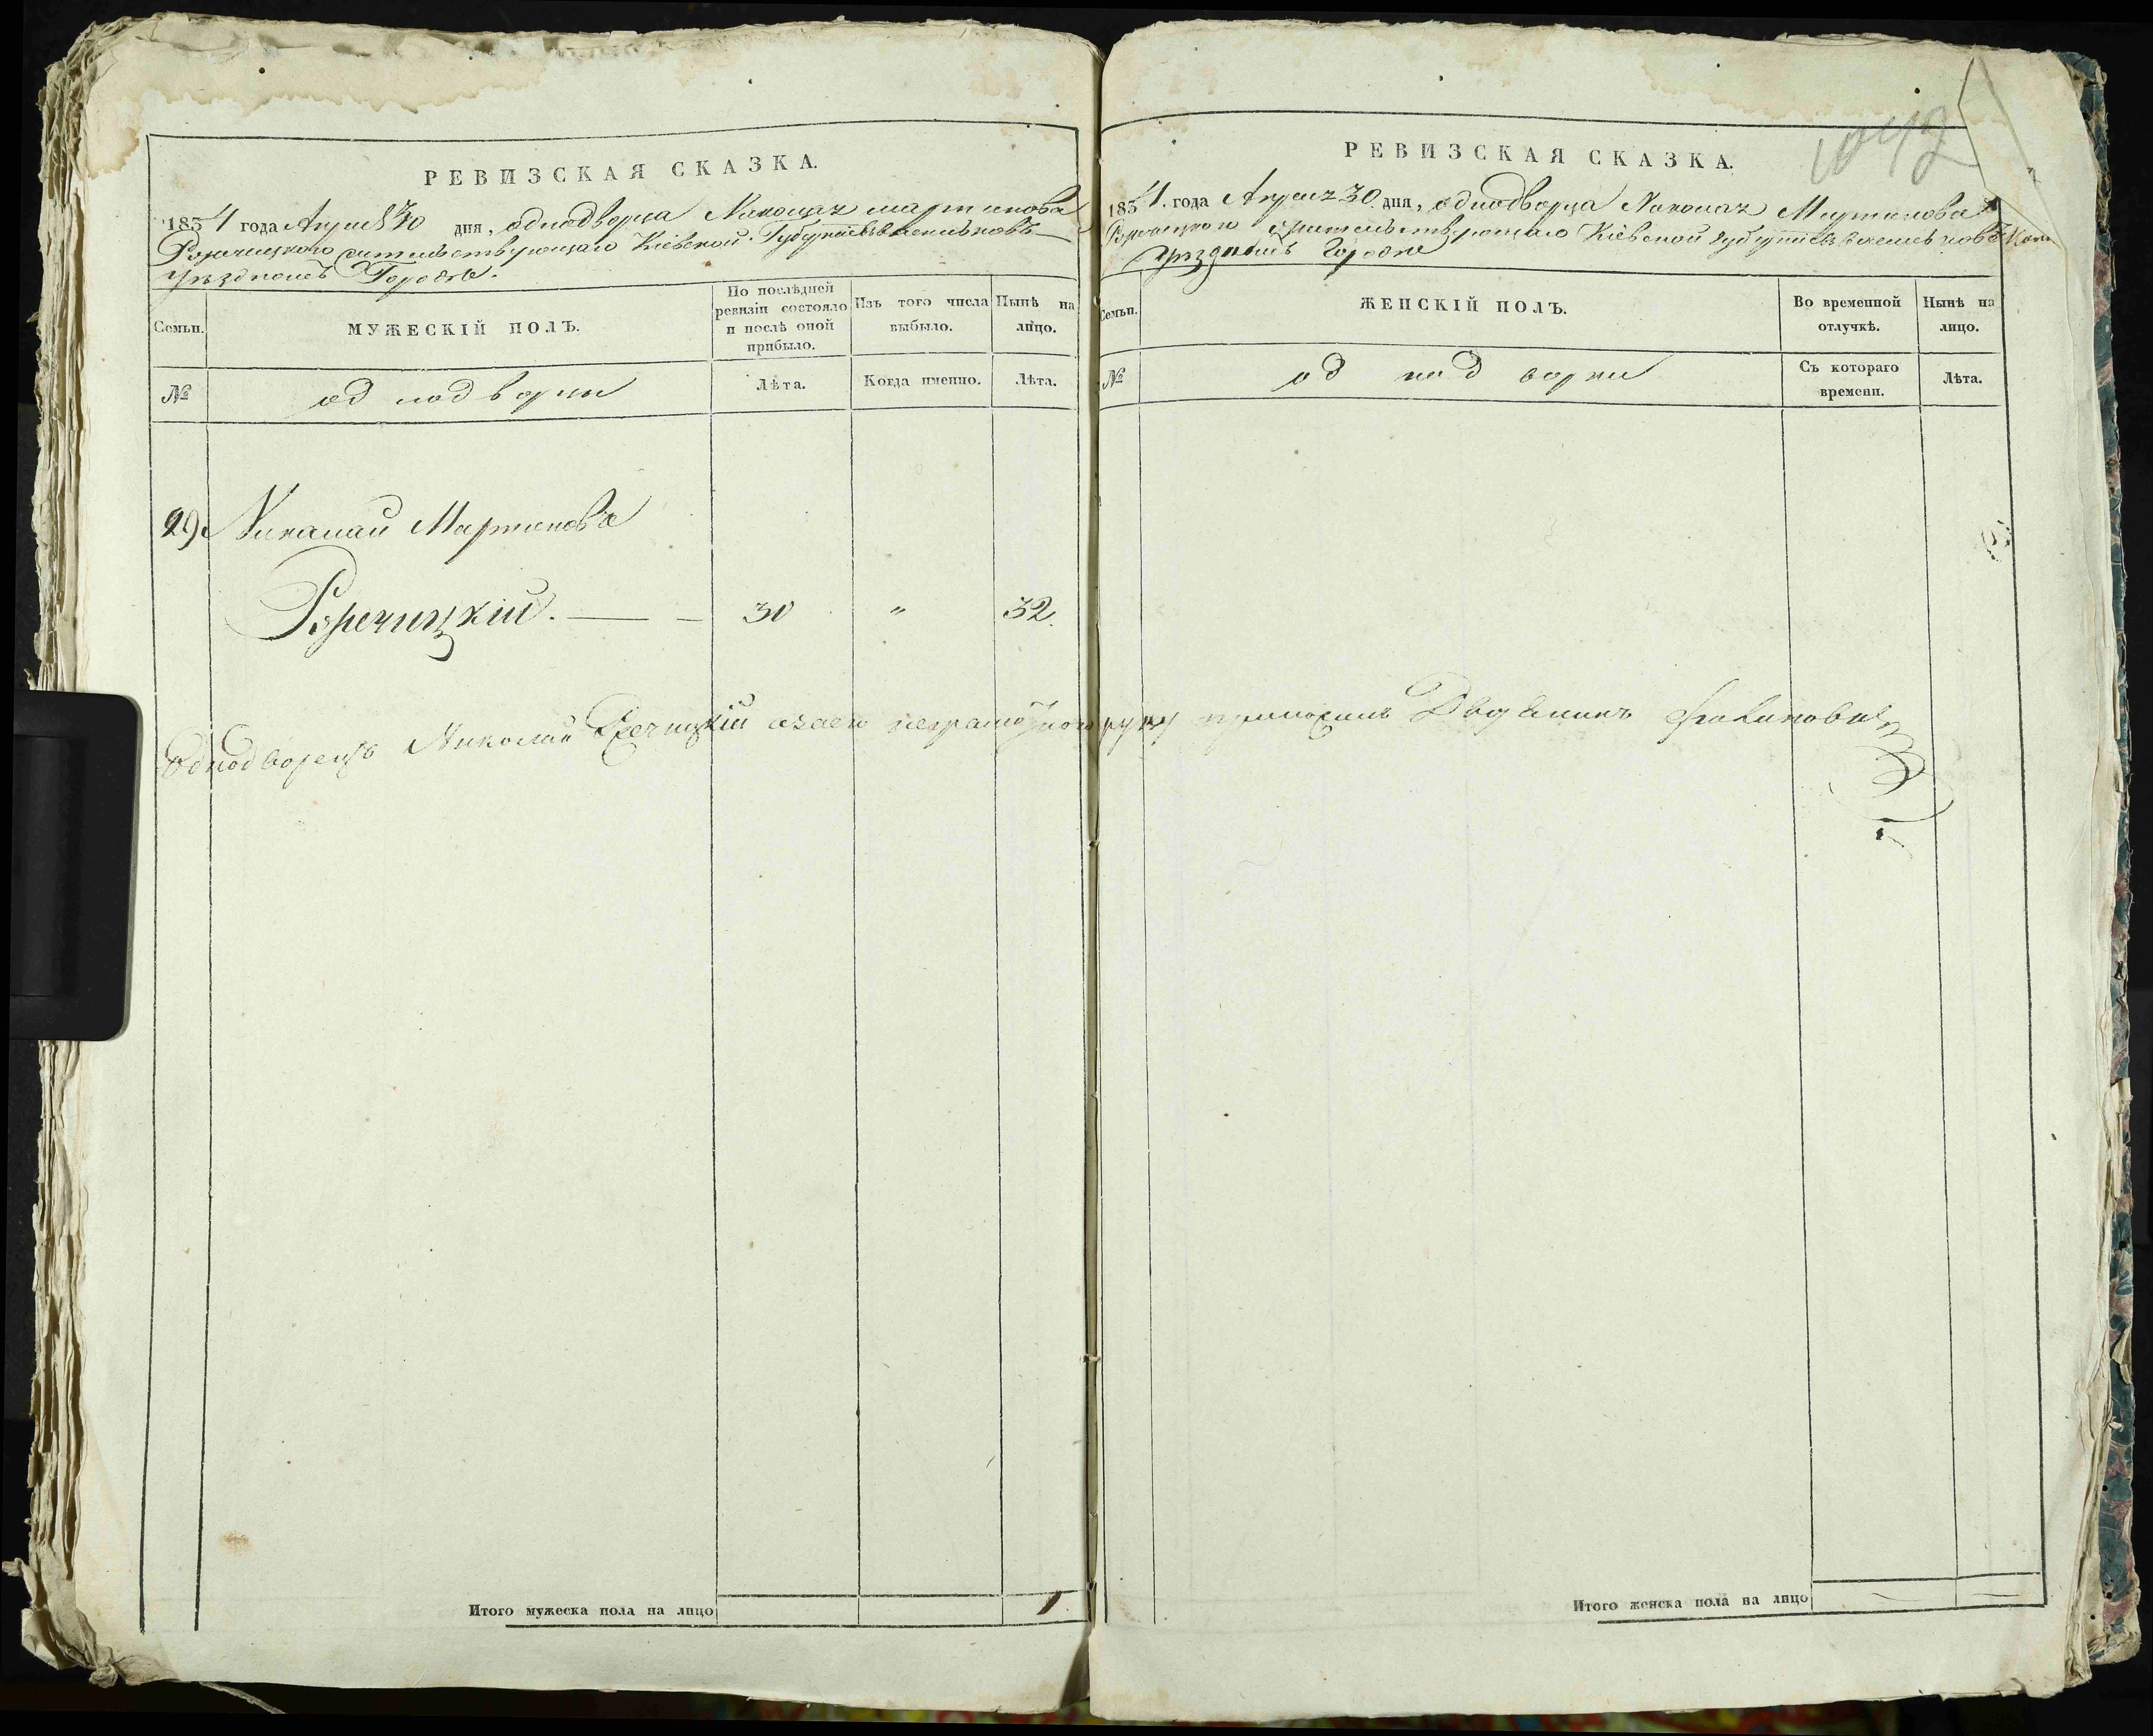 РЕВИЗСКАЯ СКАЗКА.
1834 года Апреля 30 дня, однодворца Николая Мартинова
жительствующаго Кіевской Губерніи въ Васильковъ
уѣздномъ Городе.
Семьи.
МУЖЕСКІЙ ПОЛЪ.
По послѣдней ревизіи состояло и послѣ оной прибыло.
Изъ того числа выбыло.
Нынѣ на лицо.
№
однодворцы
Лѣта.
Когда именно.
Лѣта.
29. Николай Мартиновъ
Рѣречицкій. — — 30 " 32.
Однодворецъ Николай Речицкій а за его неграмотного руку приложилъ Дворянинъ
Итого мужеска пола на лицо 1
1042
РЕВИЗСКАЯ СКАЗКА.
1834. года Апреля 30. дня, однодворца Николая Мартинова
жительствующаго Кіевской Губерніи въ Васильков
уѣздномъ Городе
Семьи.
ЖЕНСКІЙ ПОЛЪ.
Во временной отлучкѣ.
Нынѣ на лицо.
№
однодворки
Съ котораго времени.
Лѣта.
Итого женска пола на лицо — —